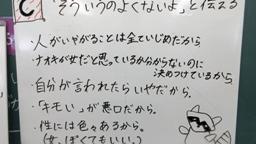 C 「そういうのよくないよ」と伝える
・人がいやがることは全ていじめだから。
・ナオキが女だと思っているか分からないのに
決めつけているから。
・自分が言われたらいやだから。
・「キモい」が悪口だから。
・性には色々あるから。
(女っぽくてもいい。)